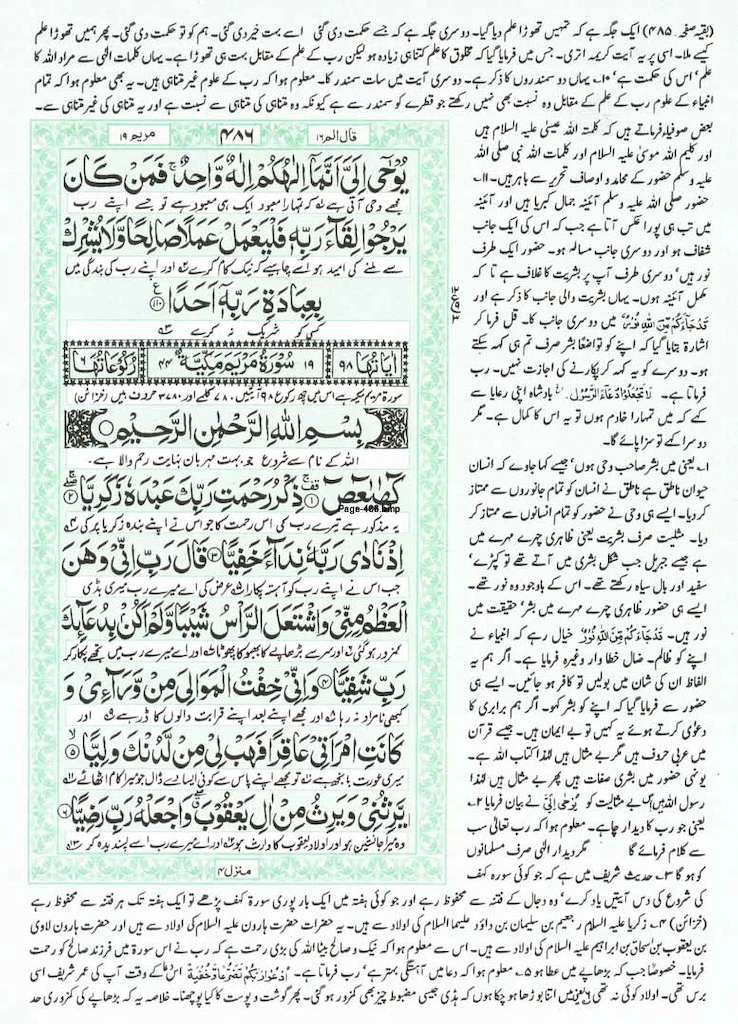 (بقیہ صفحہ ۴۸۵) ایک جگہ ہے کہ تمہیں تھوڑا علم دیا گیا۔ دوسری جگہ ہے کہ جسے حکمت دی گئی اسے بہت خیر دی گئی۔ ہم کو تو حکمت دی گئی۔ پھر ہمیں تھوڑا علم
کیسے ملا۔ اسی پر یہ آیت کریمہ اتری۔ جس میں فرمایا گیا کہ مخلوق کا علم کتنا ہی زیادہ ہو لیکن رب کے علم کے مقابل بہت ہی تھوڑا ہے۔ یہاں کلمات الٰہی سے مراد اللہ کا
علم' اس کی حکمت ہے' ۱۰۔ یہاں دو سمندروں کا ذکر ہے۔ دوسری آیت میں سات سمندر کا۔ معلوم ہوا کہ رب کے علوم غیر متناہی ہیں۔ یہ بھی معلوم ہوا کہ تمام
انبیاء کے علوم رب کے علم کے مقابل وہ نسبت بھی نہیں رکھتے جو قطرے کو سمندر سے ہے کیونکہ وہ متناہی کی متناہی سے نسبت ہے اور یہ متناہی کی غیر متناہی سے۔
قال الم ۱۶ ۴۸۶ مریم ۱۹
یُوۡحٰۤی اِلَیَّ اَنَّمَاۤ اِلٰہُکُمۡ اِلٰہٌ وَّاحِدٌ ۚ فَمَنۡ کَانَ
مجھے وحی آتی ہے کہ تمہارا معبود ایک ہی معبود ہے تو جسے اپنے رب
یَرۡجُوۡا لِقَآءَ رَبِّہٖ فَلۡیَعۡمَلۡ عَمَلًا صَالِحًا وَّلَا یُشۡرِکۡ
سے ملنے کی امید ہو اسے چاہیے کہ نیک کام کرے اور اپنے رب کی بندگی میں
بِعِبَادَۃِ رَبِّہٖۤ اَحَدًا ﴿۱۱۰﴾
کسی کو شریک نہ کرے
اٰیَاتُہَا ۹۸ ۱۹ سُوۡرَۃُ مَرۡیَمَ مَکِّیَّۃٌ ۴۴ رُکُوۡعَاتُہَا ۶
سورۃ مریم مکیہ ہے اس میں چھ رکوع ۹۸ آیتیں۔ ۷۸۰ کلمے اور ۳۷۸۰ حروف ہیں (خزائن)
بِسۡمِ اللّٰہِ الرَّحۡمٰنِ الرَّحِیۡمِ
اللہ کے نام سے شروع جو بہت مہربان نہایت رحم والا ہے۔
کٓہٰیٰعٓصٓ ﴿۱﴾ ذِکۡرُ رَحۡمَتِ رَبِّکَ عَبۡدَہٗ زَکَرِیَّا ﴿۲﴾
Page-486.bmp
یہ مذکور ہے تیرے رب کی اس رحمت کا جو اس نے اپنے بندہ زکریا پر کی
اِذۡ نَادٰی رَبَّہٗ نِدَآءً خَفِیًّا ﴿۳﴾ قَالَ رَبِّ اِنِّیۡ وَہَنَ
جب اس نے اپنے رب کو آہستہ پکارا عرض کی اے میرے رب میری ہڈی
الۡعَظۡمُ مِنِّیۡ وَاشۡتَعَلَ الرَّاۡسُ شَیۡبًا وَّلَمۡ اَکُنۡۢ بِدُعَآئِکَ
کمزور ہو گئی اور سر سے بڑھاپے کا بھبھوکا پھوٹا اور اے میرے رب میں تجھے پکار کر
رَبِّ شَقِیًّا ﴿۴﴾ وَاِنِّیۡ خِفۡتُ الۡمَوَالِیَ مِنۡ وَّرَآءِیۡ وَ
کبھی نامراد نہ رہا اور مجھے اپنے بعد اپنے قرابت والوں کا ڈر ہے اور
کَانَتِ امۡرَاَتِیۡ عَاقِرًا فَہَبۡ لِیۡ مِنۡ لَّدُنۡکَ وَلِیًّا ﴿۵﴾
میری عورت بانجھ ہے تو مجھے اپنے پاس سے کوئی ایسا دے ڈال جو میرا کام اٹھا لے
یَّرِثُنِیۡ وَیَرِثُ مِنۡ اٰلِ یَعۡقُوۡبَ ۖ وَاجۡعَلۡہُ رَبِّ رَضِیًّا ﴿۶﴾
وہ میرا جانشین ہو اور اولاد یعقوب کا وارث ہو اور اے میرے رب اسے پسندیدہ کر
منزل ۴
بعض صوفیاء فرماتے ہیں کہ کلمتہ اللہ عیسیٰ علیہ السلام ہیں
اور کلیم اللہ موسیٰ علیہ السلام اور کلمات اللہ نبی صلی اللہ
علیہ وسلم حضور کے محامد و اوصاف تحریر سے باہر ہیں۔ ۱۱۔
حضور صلی اللہ علیہ وسلم آئینہ جمال کبریا ہیں اور آئینہ
میں تب ہی پورا عکس آتا ہے جب کہ اس کی ایک جانب
شفاف ہو اور دوسری جانب مسالہ ہو۔ حضور ایک طرف
نور ہیں' دوسری طرف آپ پر بشریت کا غلاف ہے تا کہ
مکمل آئینہ ہوں۔ یہاں بشریت والی جانب کا ذکر ہے اور
قَدْ جَآءَكُمْ مِّنَ اللّٰهِ نُوْرٌ میں دوسری جانب کا۔ قل فرما کر
اشارۃ بتایا گیا کہ اپنے کو تواضعًا بشر صرف تم ہی کہہ سکتے
ہو۔ دوسرے کو یہ کہہ کر پکارنے کی اجازت نہیں۔ رب
فرماتا ہے۔ لَا تَجْعَلُوْا دُعَآءَ الرَّسُوْلِ۔ الخ بادشاہ اپنی رعایا سے
کہے کہ میں تمہارا خادم ہوں تو یہ اس کا کمال ہے۔ مگر
دوسرا کہے تو سزا پائے گا۔
۱۔ یعنی میں بشر صاحب وحی ہوں' جیسے کہا جاوے کہ انسان
حیوان ناطق ہے ناطق نے انسان کو تمام جانوروں سے ممتاز
کر دیا۔ ایسے ہی وحی نے حضور کو تمام انسانوں سے ممتاز کر
دیا۔ مثلیت صرف بشریت یعنی ظاہری چہرے مہرے میں
ہے جیسے جبریل جب شکل بشری میں آتے تھے تو کپڑے'
سفید اور بال سیاہ رکھتے تھے۔ اس کے باوجود وہ نور تھے۔
ایسے ہی حضور ظاہری چہرے مہرے میں بشر' حقیقت میں
نور ہیں۔ قَدْ جَآءَكُمْ مِّنَ اللّٰهِ نُوْرٌ خیال رہے کہ انبیاء نے
اپنے کو ظالم۔ ضال خطاوار وغیرہ فرمایا ہے۔ اگر ہم یہ
الفاظ ان کی شان میں بولیں تو کافر ہو جائیں۔ ایسے ہی
حضور سے فرمایا گیا کہ اپنے کو بشر کہو۔ اگر ہم برابری کا
دعوٰی کرتے ہوئے یہ کہیں تو بے ایمان ہیں۔ جیسے قرآن
میں عربی حروف ہیں مگر بے مثال ہیں لہٰذا کتاب اللہ ہے۔
یونہی حضور میں بشری صفات ہیں پھر بے مثال ہیں لہٰذا
رسول اللہ ہیں اس بے مثالیت کو یُوْحٰۤى اِلَیَّ نے بیان فرمایا ۲۔
یعنی جو رب کا دیدار چاہے۔ معلوم ہوا کہ رب تعالیٰ سب
سے کلام فرمائے گا مگر دیدار الٰہی صرف مسلمانوں
کو ہو گا ۳۔ حدیث شریف میں ہے کہ جو کوئی سورہ کہف
کی شروع کی دس آیتیں یاد کرے' وہ دجال کے فتنہ سے محفوظ رہے اور جو کوئی ہفتہ میں ایک بار پوری سورۃ کہف پڑھے تو ایک ہفتہ تک ہر فتنہ سے محفوظ رہے
(خزائن) ۴۔ زکریا علیہ السلام رجعیم بن سلیمان بن داؤد علیہما السلام کی اولاد سے ہیں۔ یہ حضرات حضرت ہارون علیہ السلام کی اولاد سے ہیں اور حضرت ہارون لاوی
بن یعقوب بن اسحاق بن ابراہیم علیہ السلام کی اولاد سے ہیں۔ اس سے معلوم ہوا کہ نیک و صالح بیٹا اللہ کی بڑی رحمت ہے کہ رب نے اس سورۃ میں فرزند صالح کو رحمت
فرمایا۔ خصوصاً جب کہ بڑھاپے میں عطا ہو ۵۔ معلوم ہوا کہ دعا میں آہستگی بہتر ہے' رب فرماتا ہے۔ اُدْعُوْا رَبَّكُمْ تَضَرُّعًا وَّخُفْيَةً اس دعا کے وقت آپ کی عمر شریف اسی
برس تھی۔ اولاد کوئی نہ تھی ۶۔ یعنی میں اتنا بوڑھا ہو چکا ہوں کہ ہڈی جیسی مضبوط چیز بھی کمزور ہو گئی۔ پھر گوشت و پوست کا کیا پوچھنا۔ خلاصہ یہ کہ بڑھاپے کی کمزوری حد